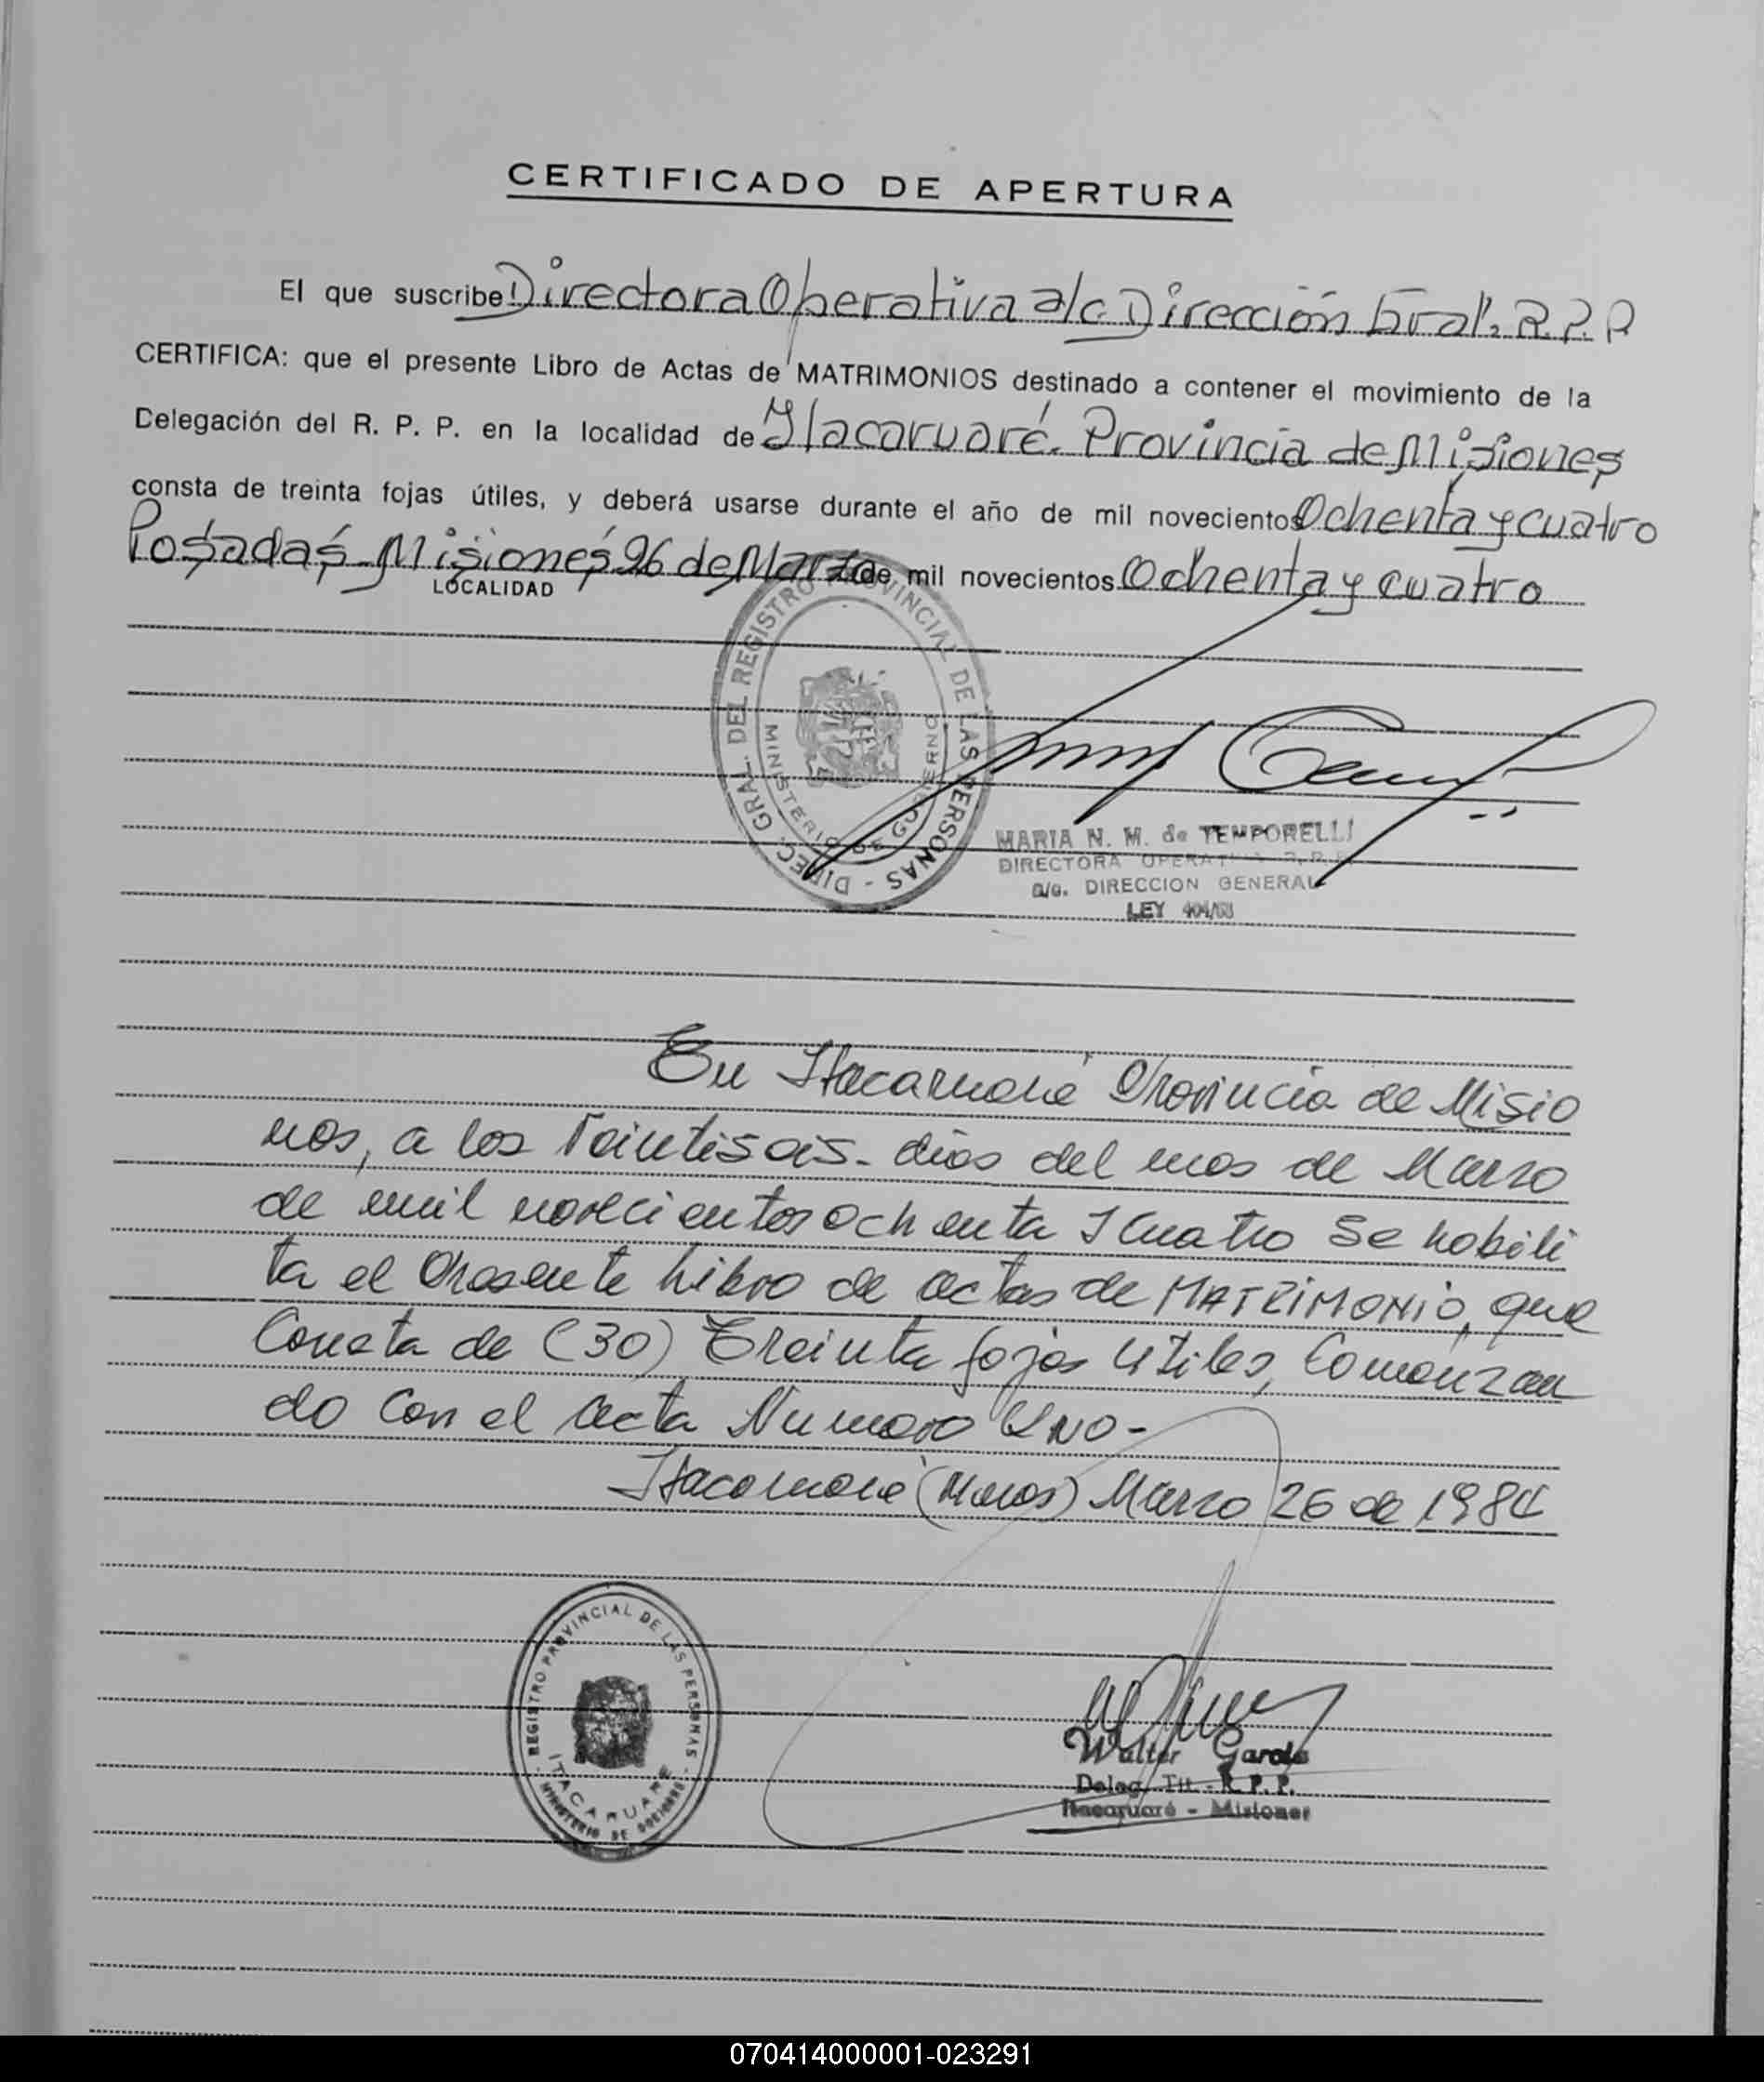 CERTIFICADO DE APERTURA
El que suscribe Directora Operativa a/c Dirección Gral. R.P.P
CERTIFICA: que el presente Libro de Actas de MATRIMONIOS destinado a contener el movimiento de la
Delegación del R. P. P. en la localidad de Itacaruaré. Provincia de Misiones
consta de treinta fojas útiles, y deberá usarse durante el año de mil novecientos Ochenta y cuatro
Posadas - Misiones 26 de Marzo de mil novecientos Ochenta y cuatro
LOCALIDAD
DIREC. GRAL. DEL REGISTRO PROVINCIAL DE LAS PERSONAS -
MINISTERIO DE GOBIERNO
MARIA N. M. de TEMPORELLI
DIRECTORA OPERATIVA R.P.P.
a/c. DIRECCION GENERAL
LEY 404/68
En Itacaruaré Provincia de Misio
nes, a los Veintiseis - dias del mes de Marzo
de mil novecientos ochenta y Cuatro Se habili
ta el Presente Libro de actas de MATRIMONIO, que
Consta de (30) Treinta fojas utiles, Comenzan
do Con el acta Numero UNO-
Itacaruaré (Mnes) Marzo 26 de 1984
- REGISTRO PROVINCIAL DE LAS PERSONAS -
ITACARUARE
MINISTERIO DE GOBIERNO
Walter Garcia
Deleg. Tit. - R. P. P.
Itacaruaré - Misiones
070414000001-023291